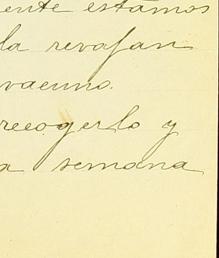 ente estamos
la revajan
vacuno.
recogerlo y
a semana